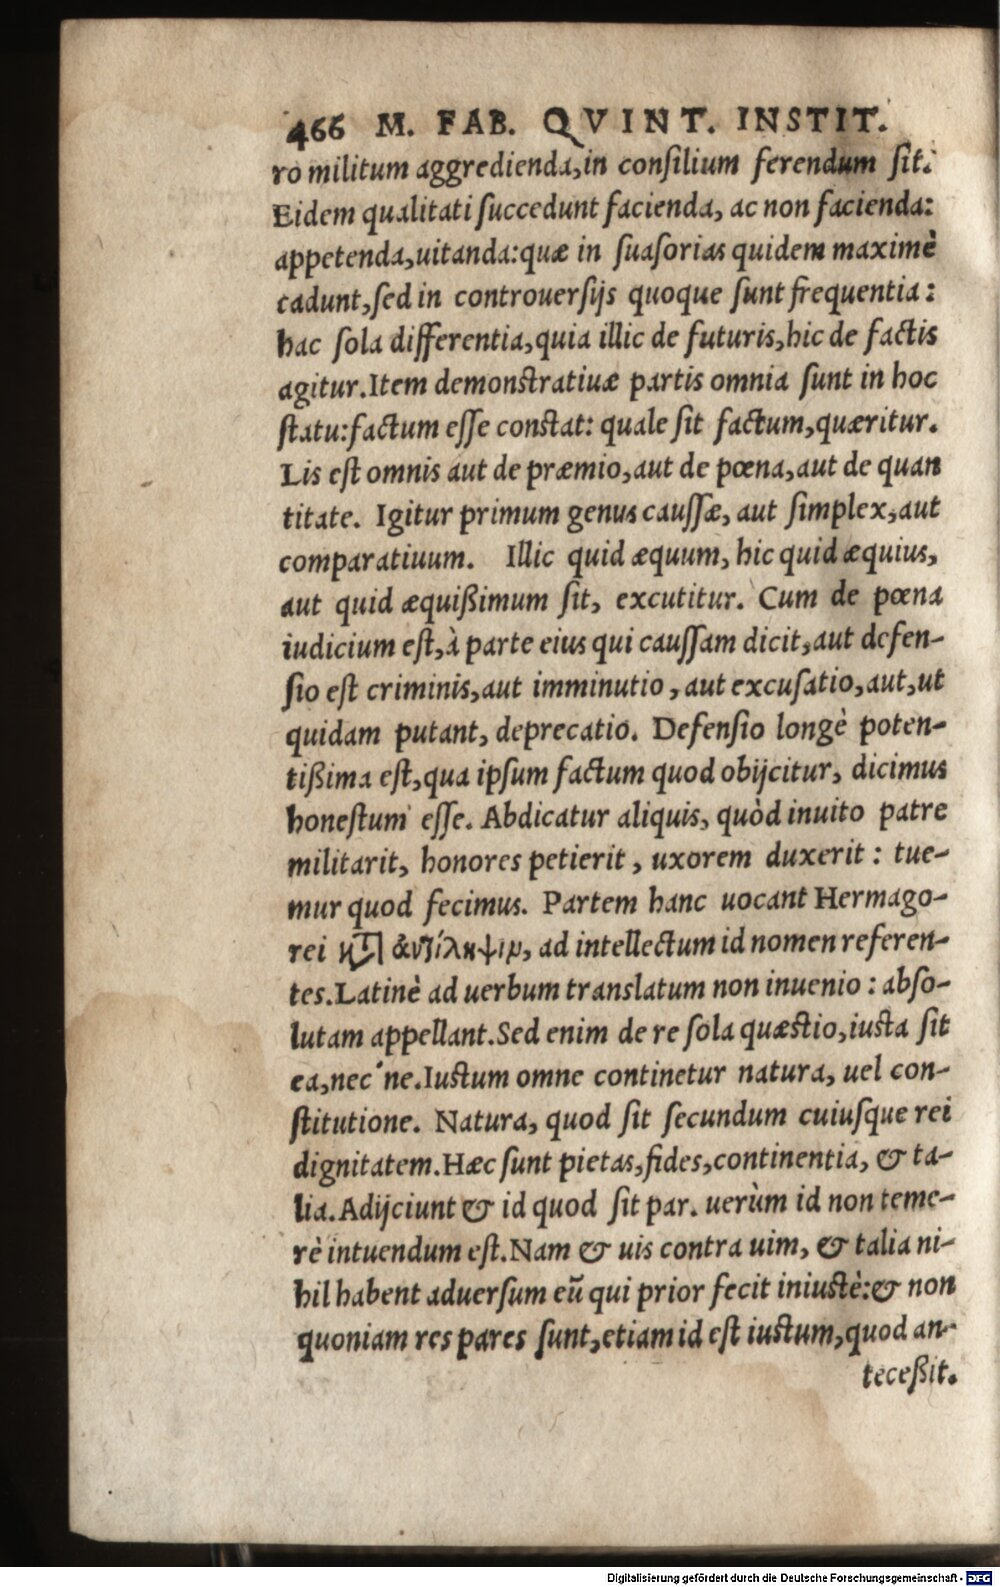 466 M. FAB. QVINT. INSTIT.
ro militum aggredienda,in consilium ferendum sit.
Eidem qualitati succedunt facienda, ac non facienda:
appetenda,uitanda:quæ in suasorias quidem maximè
cadunt,sed in controuersijs quoque sunt frequentia:
hac sola differentia,quia illic de futuris,hic de factis
agitur.Item demonstratiuæ partis omnia sunt in hoc
statu:factum esse constat: quale sit factum,quæritur.
Lis est omnis aut de præmio,aut de pœna,aut de quan
titate. Igitur primum genus caussæ, aut simplex,aut
comparatiuum. Illic quid æquum, hic quid æquius,
aut quid æquißimum sit, excutitur. Cum de pœna
iudicium est,à parte eius qui caussam dicit,aut defen-
sio est criminis,aut imminutio, aut excusatio,aut,ut
quidam putant, deprecatio. Defensio longè poten-
tißima est,qua ipsum factum quod obijcitur, dicimus
honestum esse. Abdicatur aliquis, quòd inuito patre
militarit, honores petierit, uxorem duxerit: tue-
mur quod fecimus. Partem hanc uocant Hermago-
rei κατ' ἀντίληψιν, ad intellectum id nomen referen-
tes.Latinè ad uerbum translatum non inuenio: abso-
lutam appellant.Sed enim de re sola quæstio,iusta sit
ea,nec'ne.Iustum omne continetur natura, uel con-
stitutione. Natura, quod sit secundum cuiusque rei
dignitatem.Hæc sunt pietas,fides,continentia, & ta-
lia.Adijciunt & id quod sit par. uerùm id non teme-
rè intuendum est.Nam & uis contra uim, & talia ni-
hil habent aduersum eū qui prior fecit iniustè:& non
quoniam res pares sunt,etiam id est iustum,quod an-
teceßit.
Digitalisierung gefördert durch die Deutsche Forschungsgemeinschaft - DFG